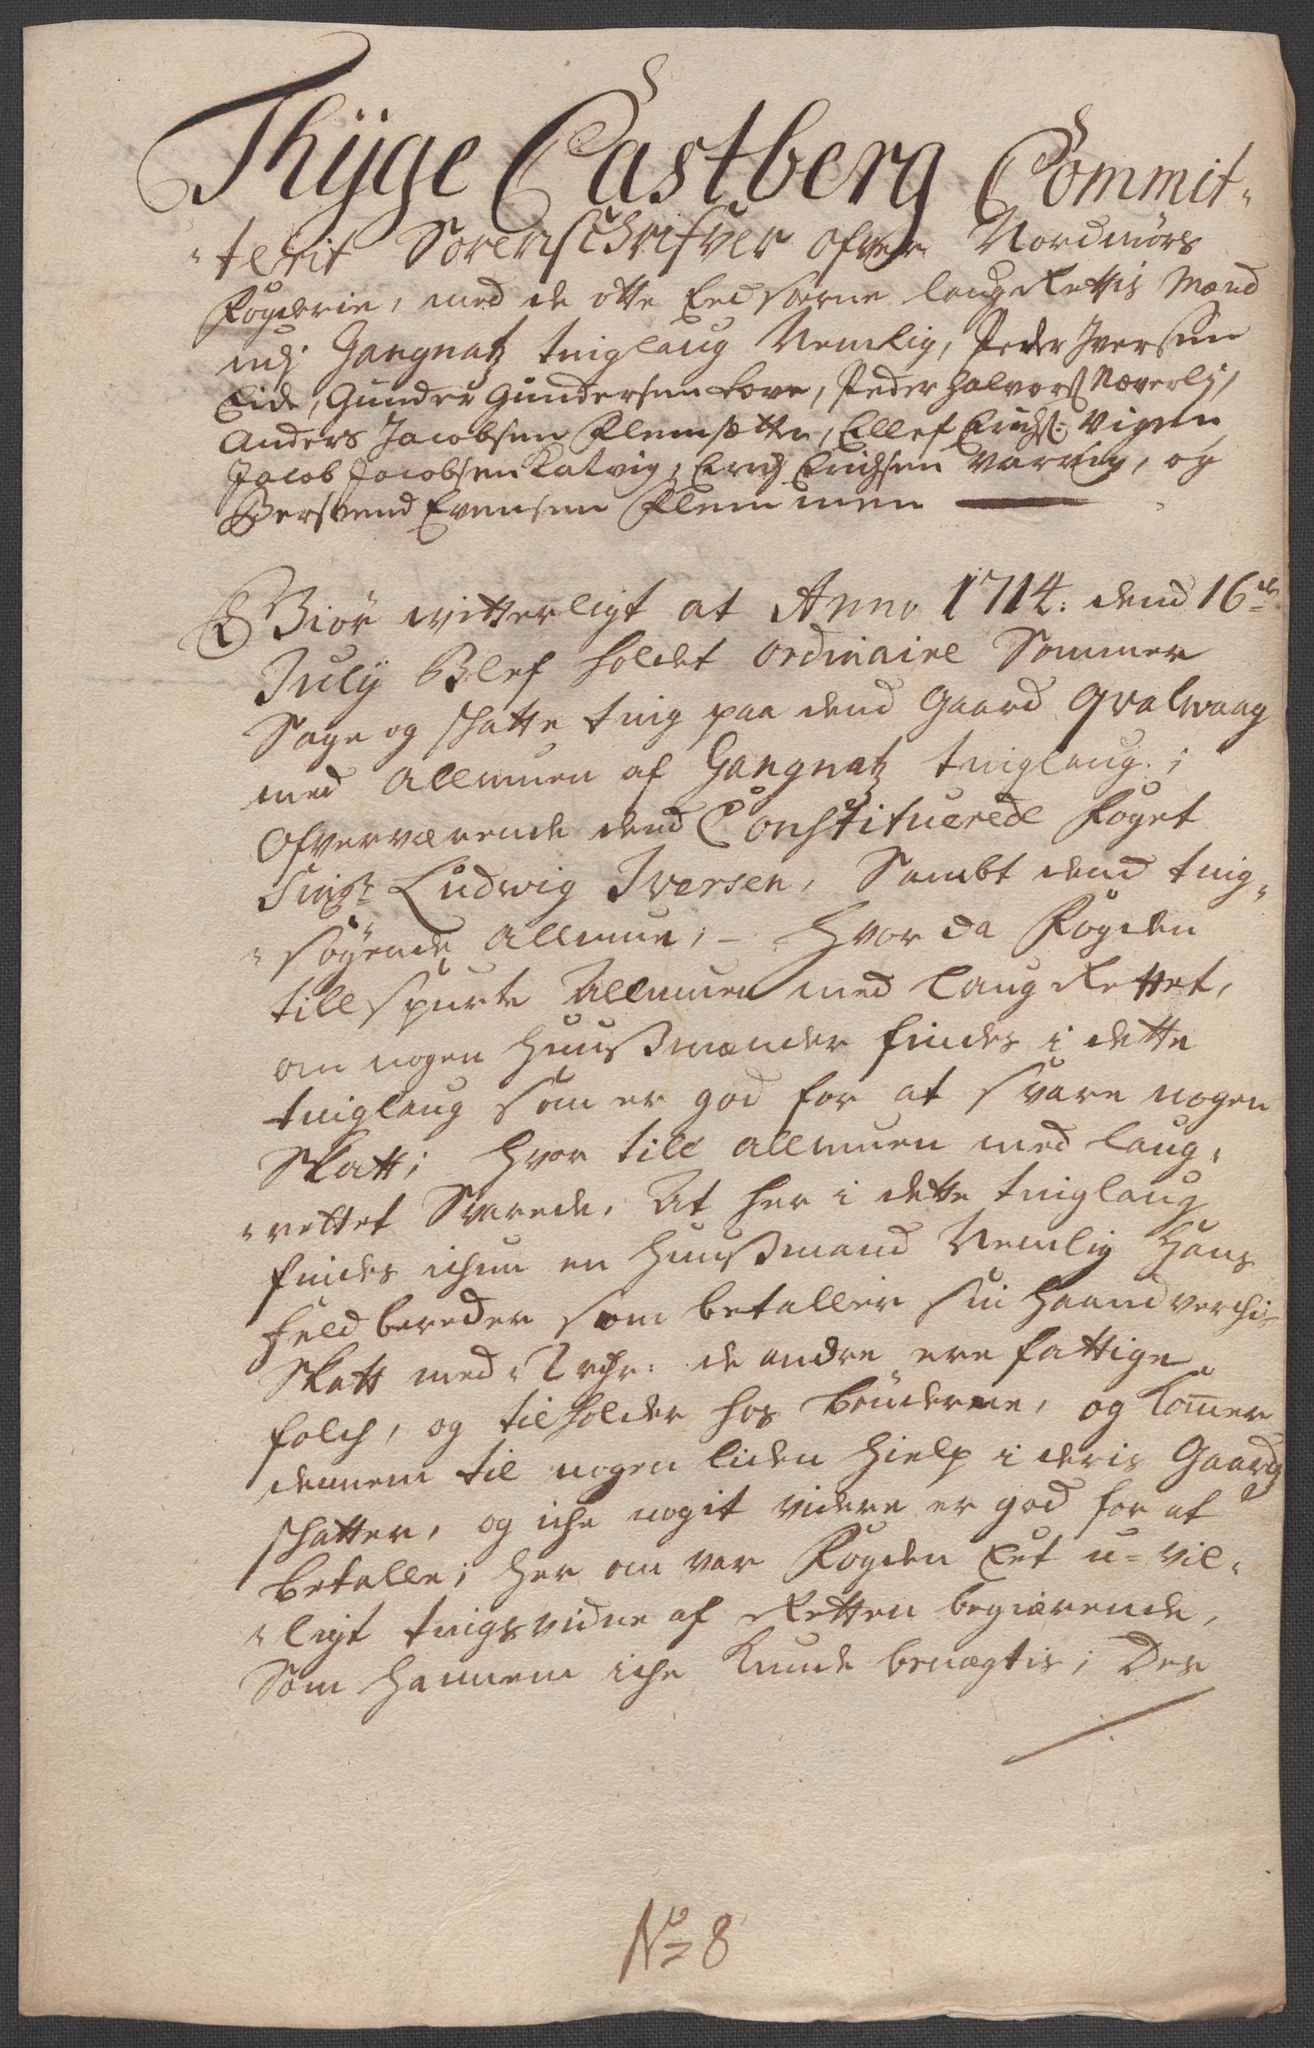 Thÿge Castberg Committ-
-terit Sorenschrifver ofver Nordmørs
Fogderie, med de otte Eedsorne laugRettis Mænd
udj Gangnatz tinglaug Nemlig, Peder Iversen
Eide, Gunder Gundersen Love, Peder Halvorß Næverlj,
Anders Jacobsen Flemsætte, Ellef Erichs: Vigen,
Jacob Jacobsen Kalvig, Erich Erichsen Varvig, og
Bersvend Evensen Flemmen
Giør witterligt at Anno 1714: dend 16de
July Blef holdet ordinaire Sommer
Sage og schatte ting paa dend Gaard Qvalwaag
med Allmuen af Gangnatz tinglaug;
Ofverværende dend Constituerede Foget
Sing:r Ludwig Iversen, Sambt dend ting-
-søgende Allmue; - Hvor da Fogden
tillspurte Allmuen med LaugRettet,
om nogen Huusmænder findes i dette
tinglaug som er god for at svare nogen
Skatt; Hvor till Allmuen med laug-
-rettet Svarede, At her i dette tinglaug
findes ichun en Huusmand Nemlig Hans
Feldbereder som betaller sin Haandverchs
Skatt med 2 rdr: de andre ere fattige
folch, og tilholder hos bønderne, og komer
dennem til nogen liden Hielp i deris Gaards
schatter, og iche nogit videre er god for at
betalle; Her om var Fogden Eet u-vil-
-ligt tingsvidne af Retten begiærende,
Som hannem iche kunde benægtis; Des
No 8